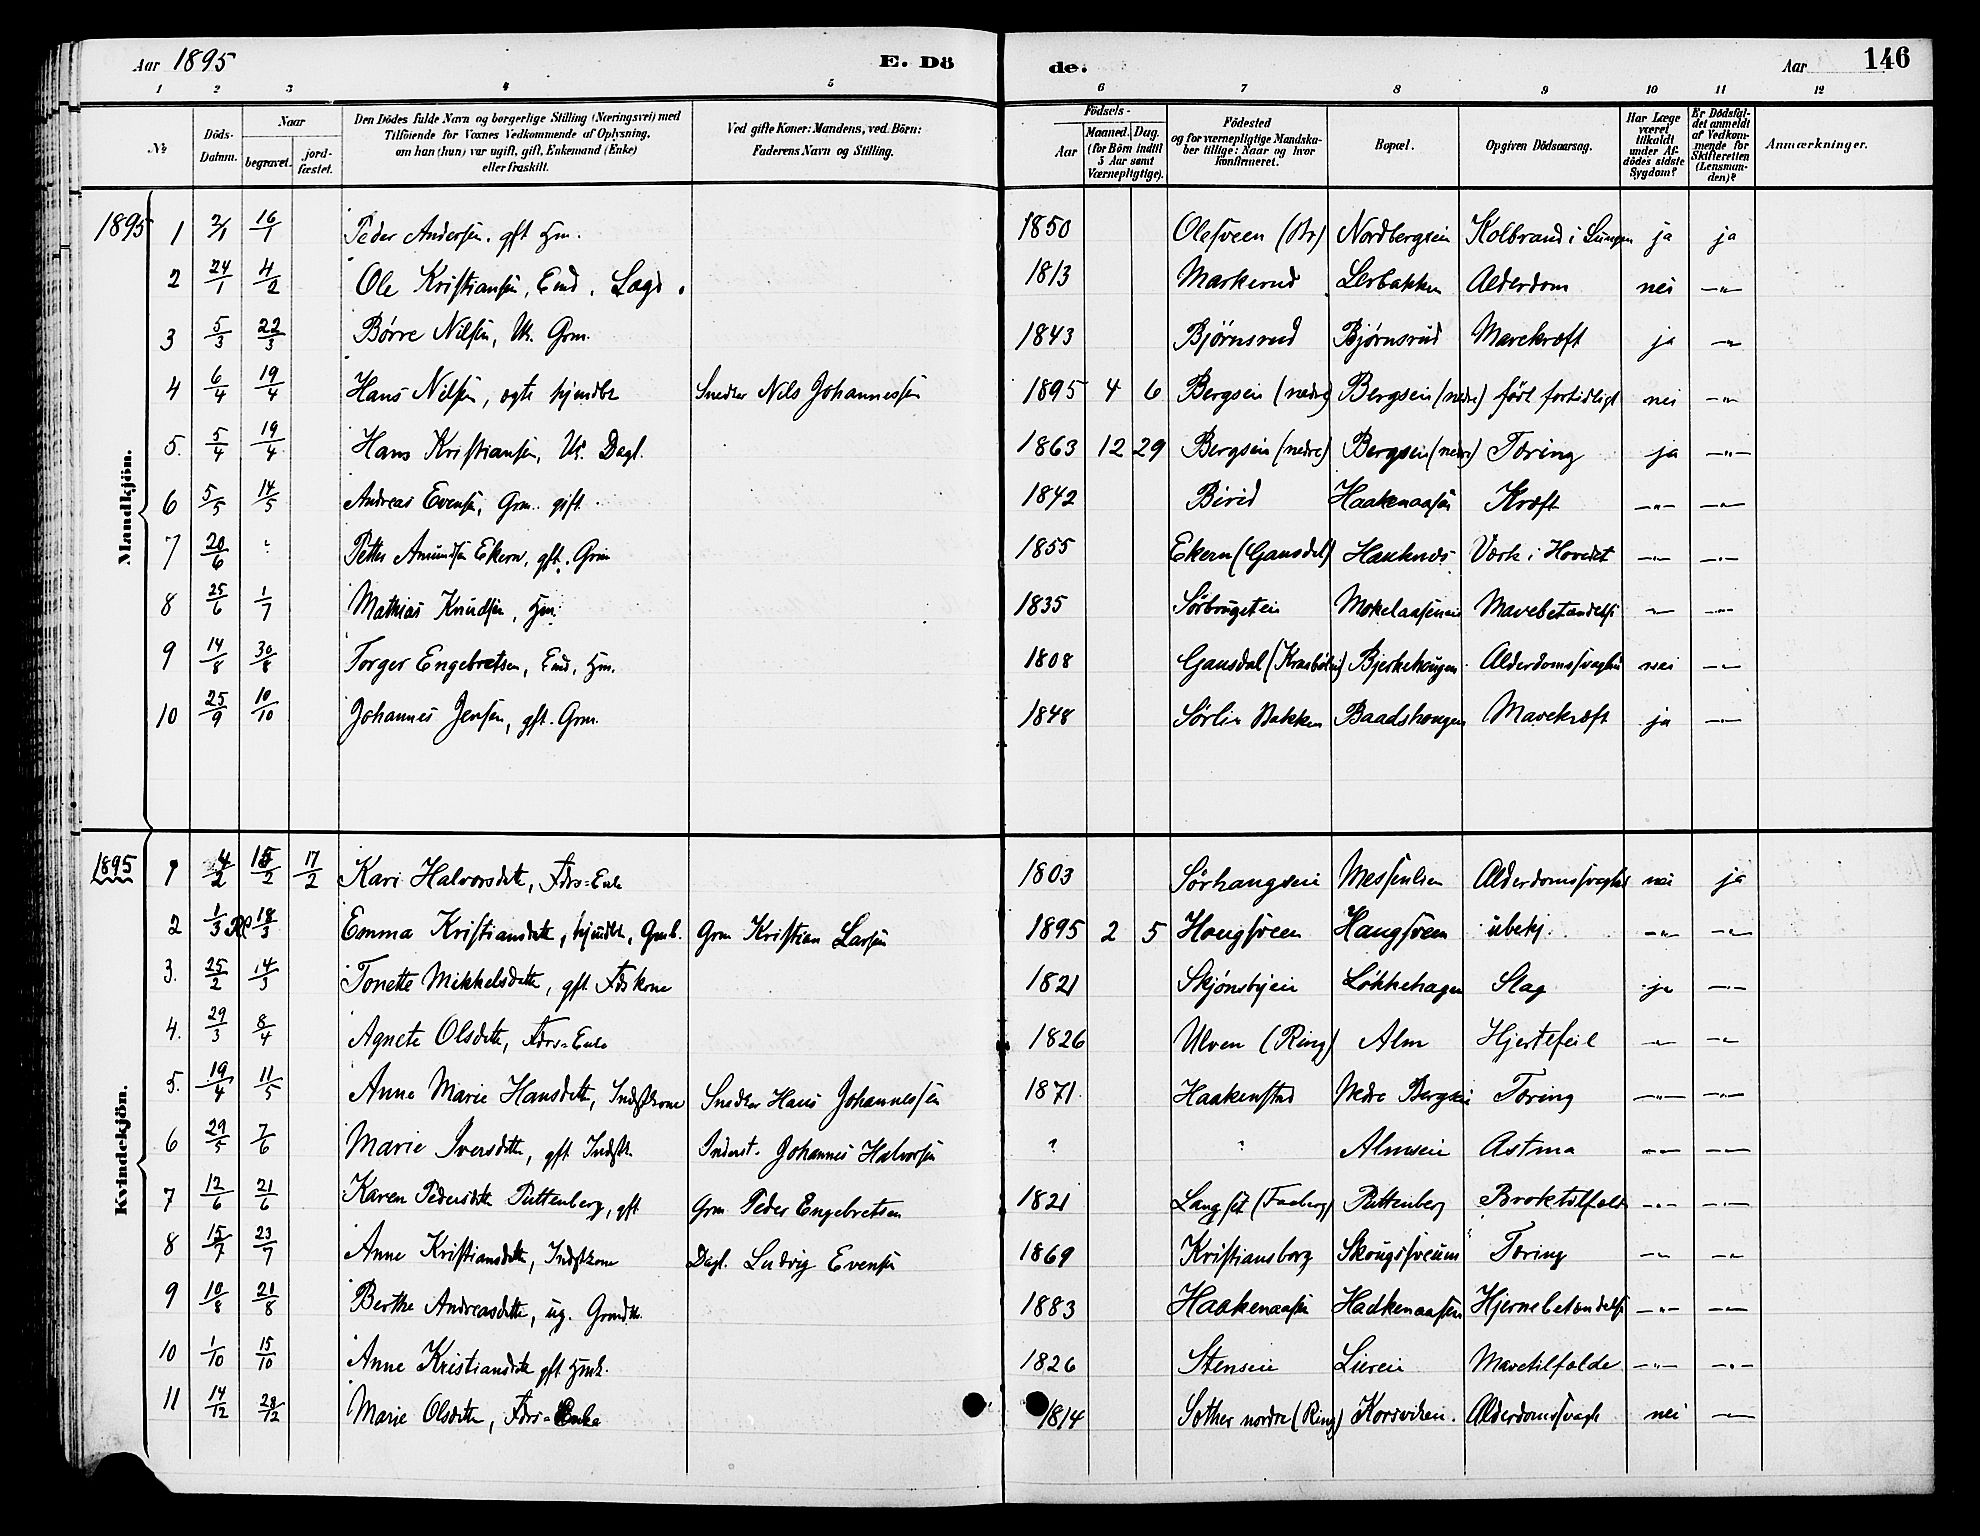 Aar 1895 E. Dö de. Aar 146
1 2 3 4 5 6 7 8 9 10 11 12
№
Döds-Datum.
Naar
begravet.
jord-fæstet.
Den Dödes fulde Navn og borgerlige Stilling (Næringsvei) med
Tilföiende for Voxnes Vedkommende af Oplysning,
om han (hun) var ugift, gift, Enkemand (Enke)
eller fraskilt.
Ved gifte Koner: Mandens, ved Börn:
Faderens Navn og Stilling.
Födsels-
Aar
Maaned. Dag.
(for Börn indtil
5 Aar samt
Værnepligtige).
Födested
og for værnepligtige Mandska-
ber tillige: Naar og hvor
konfirmeret.
Bopæl.
Opgiven Dödsaarsag.
Har Læge
været
tilkaldt
under Af-
dödes sidste
Sygdom?
Er Dödsfal-
det anmeldt
af Vedkom-
mende for
Skifteretten
(Lensman-
den)?
Anmærkninger.
Mandkjön.
1895 1 2/1 16/1 Peder Andersen. gft Hm. 1850 Olesveen (Br) Nordbergseie Kolbrand i Lungen ja ja
2 24/1 4/2 Ole Kristiansen, Emd. Lægd. 1813 Markerud Lerbakken Alderdom nei —"—
3 5/3 22/3 Børre Nilsen, Uk. Grm. 1843 Bjørnsrud Bjørnsrud Mavekræft ja —"—
4 6/4 19/4 Hans Nilsen, ægte hjmdbt Snedker Nils Johannessen 1895 4 6 Bergseie (nedre) Bergseie (nedre) født fortidligt nei —"—
5. 5/4 19/4 Hans Kristiansen, Uk. Dagl. 1863 12 29 Bergseie (nedre) Bergseie (nedre) Tæring ja —"—
6 5/5 14/5 Andreas Evensen, Grm. gift 1842 Birid Haakenaasen Kræft —"— —"—
7 20/6 ? Petter Amundsen Ekern, gft. Grm 1855 Ekern (Gausdal) Hauknes Værk i Hovedet —"— —"—
8 25/6 1/7 Mathias Knudsen, Hm. 1835 Mavebetændelse —"— —"—
9 14/8 30/8 Torger Engebretsen, Emd, Hm. 1808 Gausdal Bjerkehaugen Alderdomssvaghed nei —"—
10 25/9 10/10 Johannes Jensen, gft. Grm. 1848 Sørlien Bakken Baadshaugen Mavekræft ja —"—
Kvindekjön.
1895 1 4/2 15/2 17/2 Kari Halvorsdatter, Fdrs-Enke 1803 Sørhaugseie Messenlien Alderdomssvaghed nei ja
2 1/3 18/3 Emma Kristiansdatter, hjmdbt, Gmb. Grm Kristian Larsen 1895 2 5 Haugsveen Haugsveen ubekj. —"— —"—
3. 25/2 14/3 Tonette Mikkelsdatter, gft. Fdskone 1821 Skjønsbyeie Løkkehagen Slag ja —"—
4. 29/3 8/4 Agnete Olsdatter, Fdrs-Enke 1826 Ulven (Ring) Alm Hjertefeil —"— —"—
5. 19/4 11/5 Anne Marie Hansdatter, Indstkone Snedker Hans Johannessen 1871. Haakenstad Nedre Bergseie Tæring —"— —"—
6 29/5 7/6 Marie Iversdatter, gft Indstk. Inderst. Johannes Halvorsen ? ? Almseie Astma —"— —"—
7 12/6 21/6 Karen Pedersdatter Puttenberg, gft Grm Peder Engebretsen 1821 Langset (Faaberg) Puttenberg Broktilfælde —"— —"—
8 15/7 23/7 Anne Kristiansdatter, Indstkone Dagl. Ludvig Evensen 1869 Kristiansborg Skougsveum Tæring —"— —"—
9 10/8 21/8 Berthe Andreasdatter, ug. Grmdtr. 1883 Haakenaasen Haakenaasen Hjernebetændelse —"— —"—
10 1/10 15/10 Anne Kristiansdatter gft Hmk. 1826 Stenseie Liereie Mavetilfælde —"— —"—
11 14/12 28/12 Marie Olsdatter, Fdrs-Enke 1814 Sother nordre (Ring) Korsviken. Alderdomssvagh nei —"—